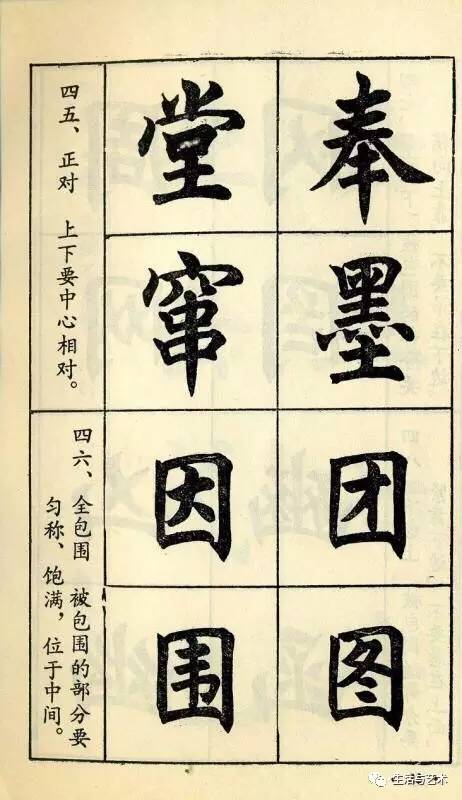 四五、正对 上下要中心相对。
奉
墨
堂
窜
四六、全包围 被包围的部分要
匀称、饱满，位于中间。
团
图
因
围
生活与艺术